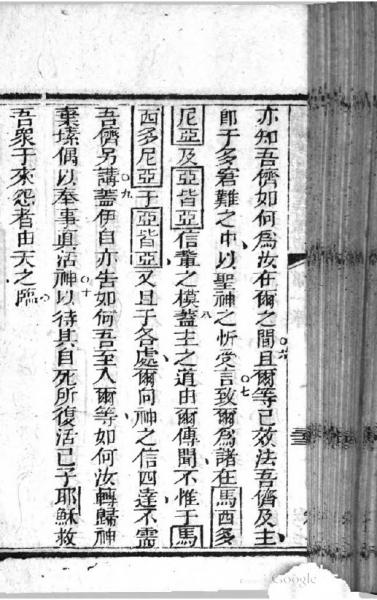 亦知吾儕如何爲汝在爾之間且爾等已效法吾儕及主
卽于多窘難之中以聖神之忻受言致爾爲諸在馬西多
尼亞及亞皆亞信輩之模蓋主之道由爾傳聞不惟于馬
西多尼亞于亞皆亞又且于各處爾向神之信四達不需
吾儕另講蓋伊自亦告如何吾至入爾等如何汝轉歸神
棄塑偶以奉事眞活神以待其自死所復活己子耶穌救
吾衆于來怨者由天之臨
六
七
八
九
十
Google